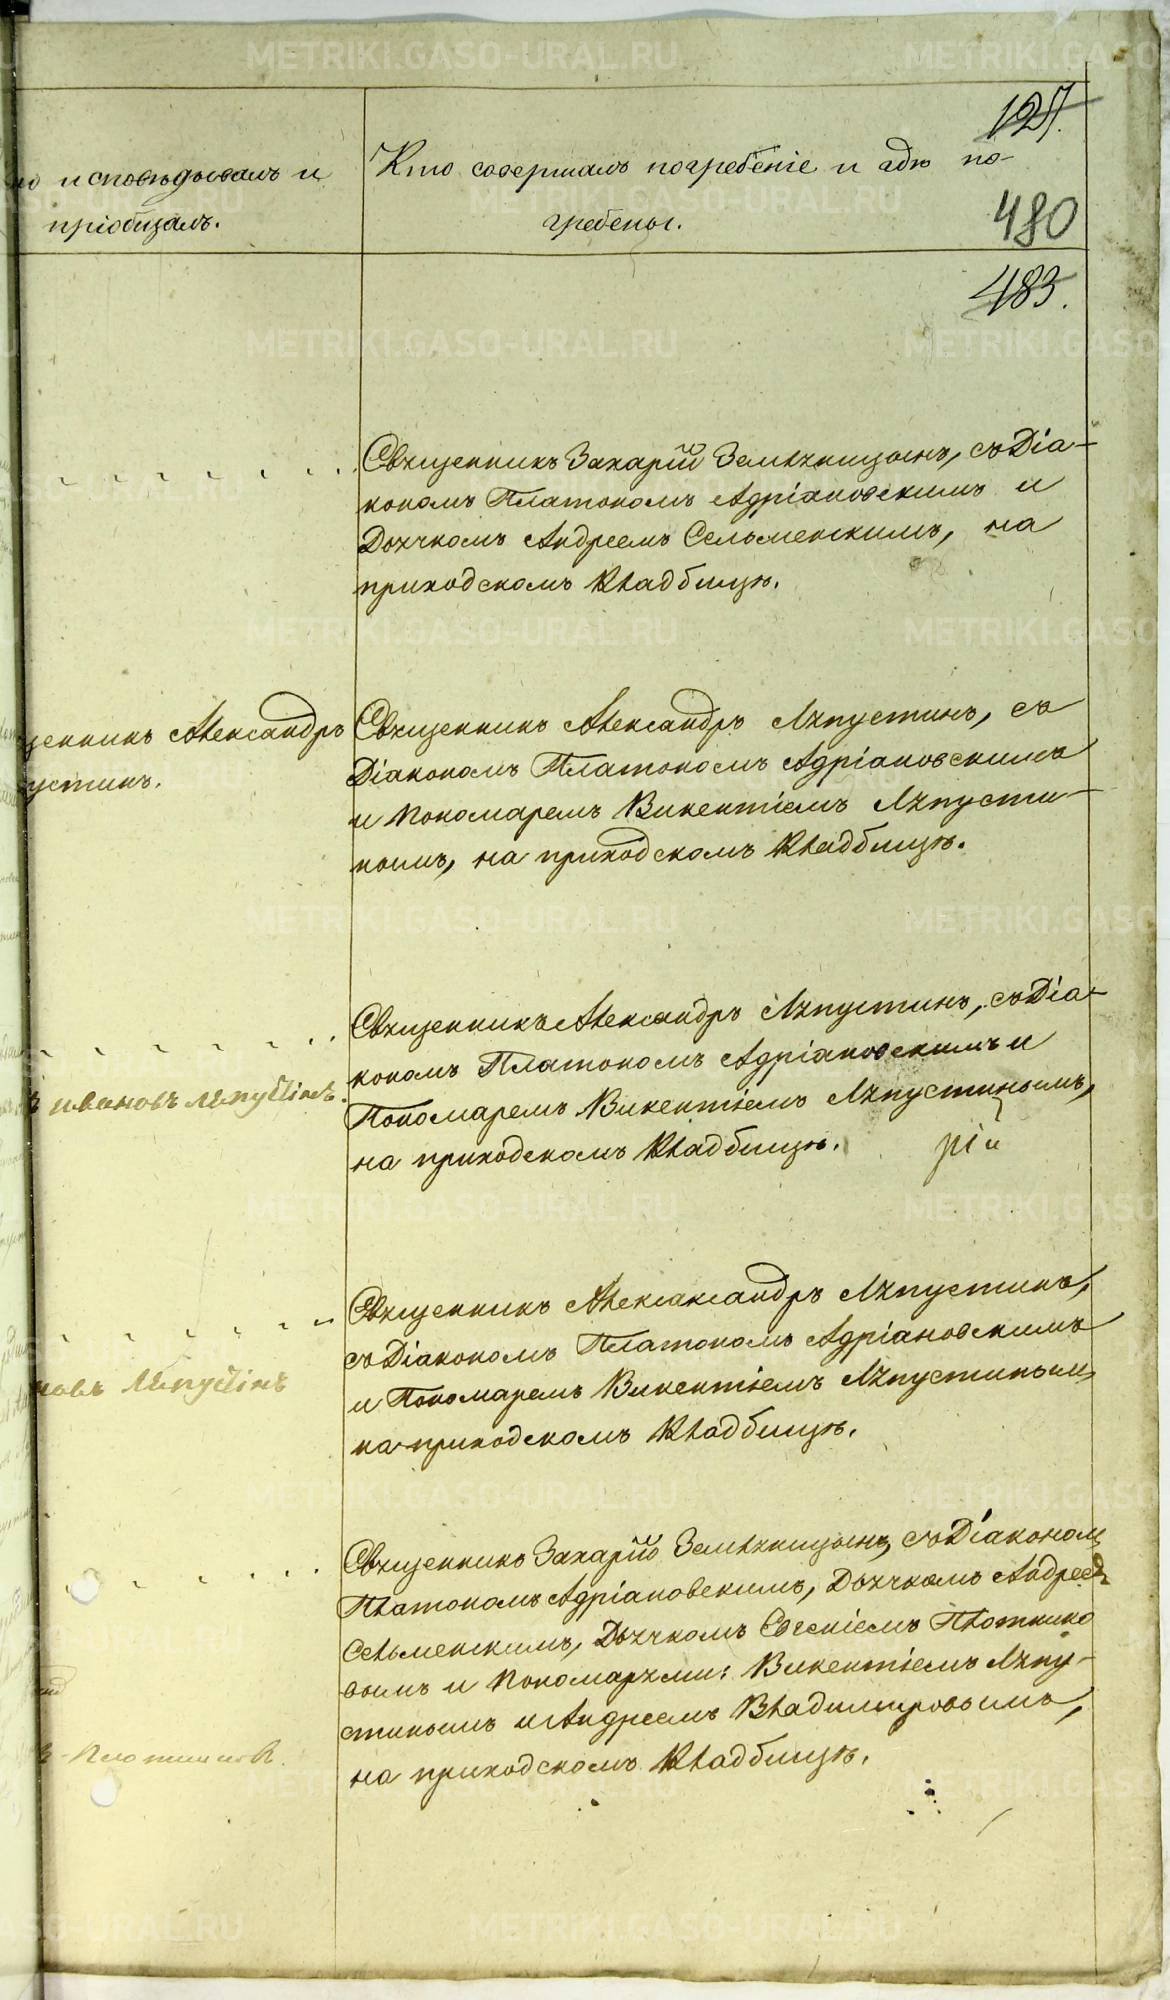 127.
исповѣдывалъ и
пріобщалъ.
Кто совершалъ погребеніе и гдѣ по-
гребены.
480
483.
Священникъ Захарій Земляницынъ, съ Діа-
кономъ Платономъ Адріановскимъ и
Дьячкомъ Андреемъ Сельменскимъ, на
приходскомъ кладбищѣ.
щенникъ Александръ
устинъ.
Священникъ Александръ Ляпустинъ, съ
Діакономъ Платономъ Адріановскимъ
и Пономаремъ Викентіемъ Ляпусти-
нымъ, на приходскомъ кладбищѣ.
ъ Ивановъ Ляпустінъ.
Священникъ Александръ Ляпустинъ, съ Діа-
кономъ Платономъ Адріановскимъ и
Пономаремъ Викентіемъ Ляпустинымъ,
на приходскомъ кладбищѣ.
рій
новъ Ляпустінъ
Священникъ Александръ Ляпустинъ,
съ Діакономъ Платономъ Адріановскимъ
и Пономаремъ Викентіемъ Ляпустиным,
на приходскомъ кладбищѣ.
Плотниковъ.
Священникъ Захарій Земляницынъ, съ Діаконом
Платономъ Адріановскимъ, Дьячкомъ Андреем
Сельменскимъ, Дьячкомъ Евгеніемъ Плотнико
вымъ и Пономарями: Викентіемъ Ляпу-
стинымъ и Андреемъ Владимировымъ,
на приходскомъ кладбищѣ.
METRIKI.GASO-URAL.RU